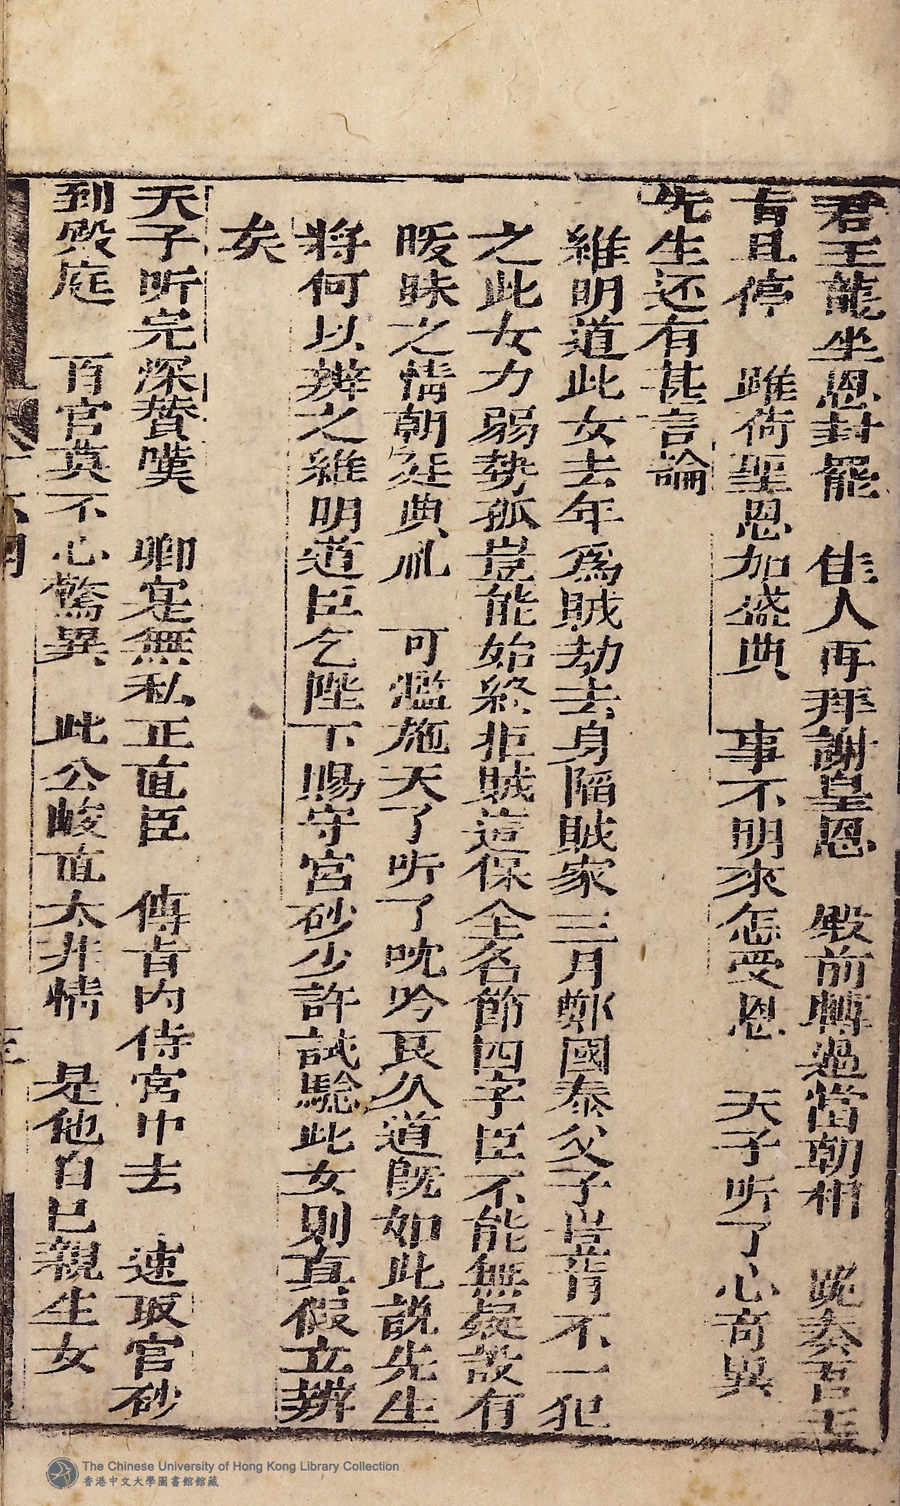 君王龍坐恩封罷　佳人再拜謝皇恩　殿前轉過當朝相　跪奏吾王
旨且停　雖荷聖恩加盛典　事不明來怎受恩　天子听了心奇異
先生还有甚言論
維明道此女去年為賊劫去身陷賊家三月鄭國泰父子豈肯不一犯
之此女力弱勢孤豈能始終拒賊這保全名節四字臣不能無疑設有
暧昧之情朝廷典礼　可濫施天了听了吮吟良久道既如此説先生
將何以辨之維明道臣乞陛下賜守宮砂少許試驗此女則真假立辨
矣
天子听完深贊嘆　卿寔無私正直臣　傳旨内侍宮中去　速取宮砂
到殿庭　百官莫不心驚異　此公峻直太非情　是他自已親生女
The Chinese University of Hong Kong Library Collection
香港中文大學圖書館館藏